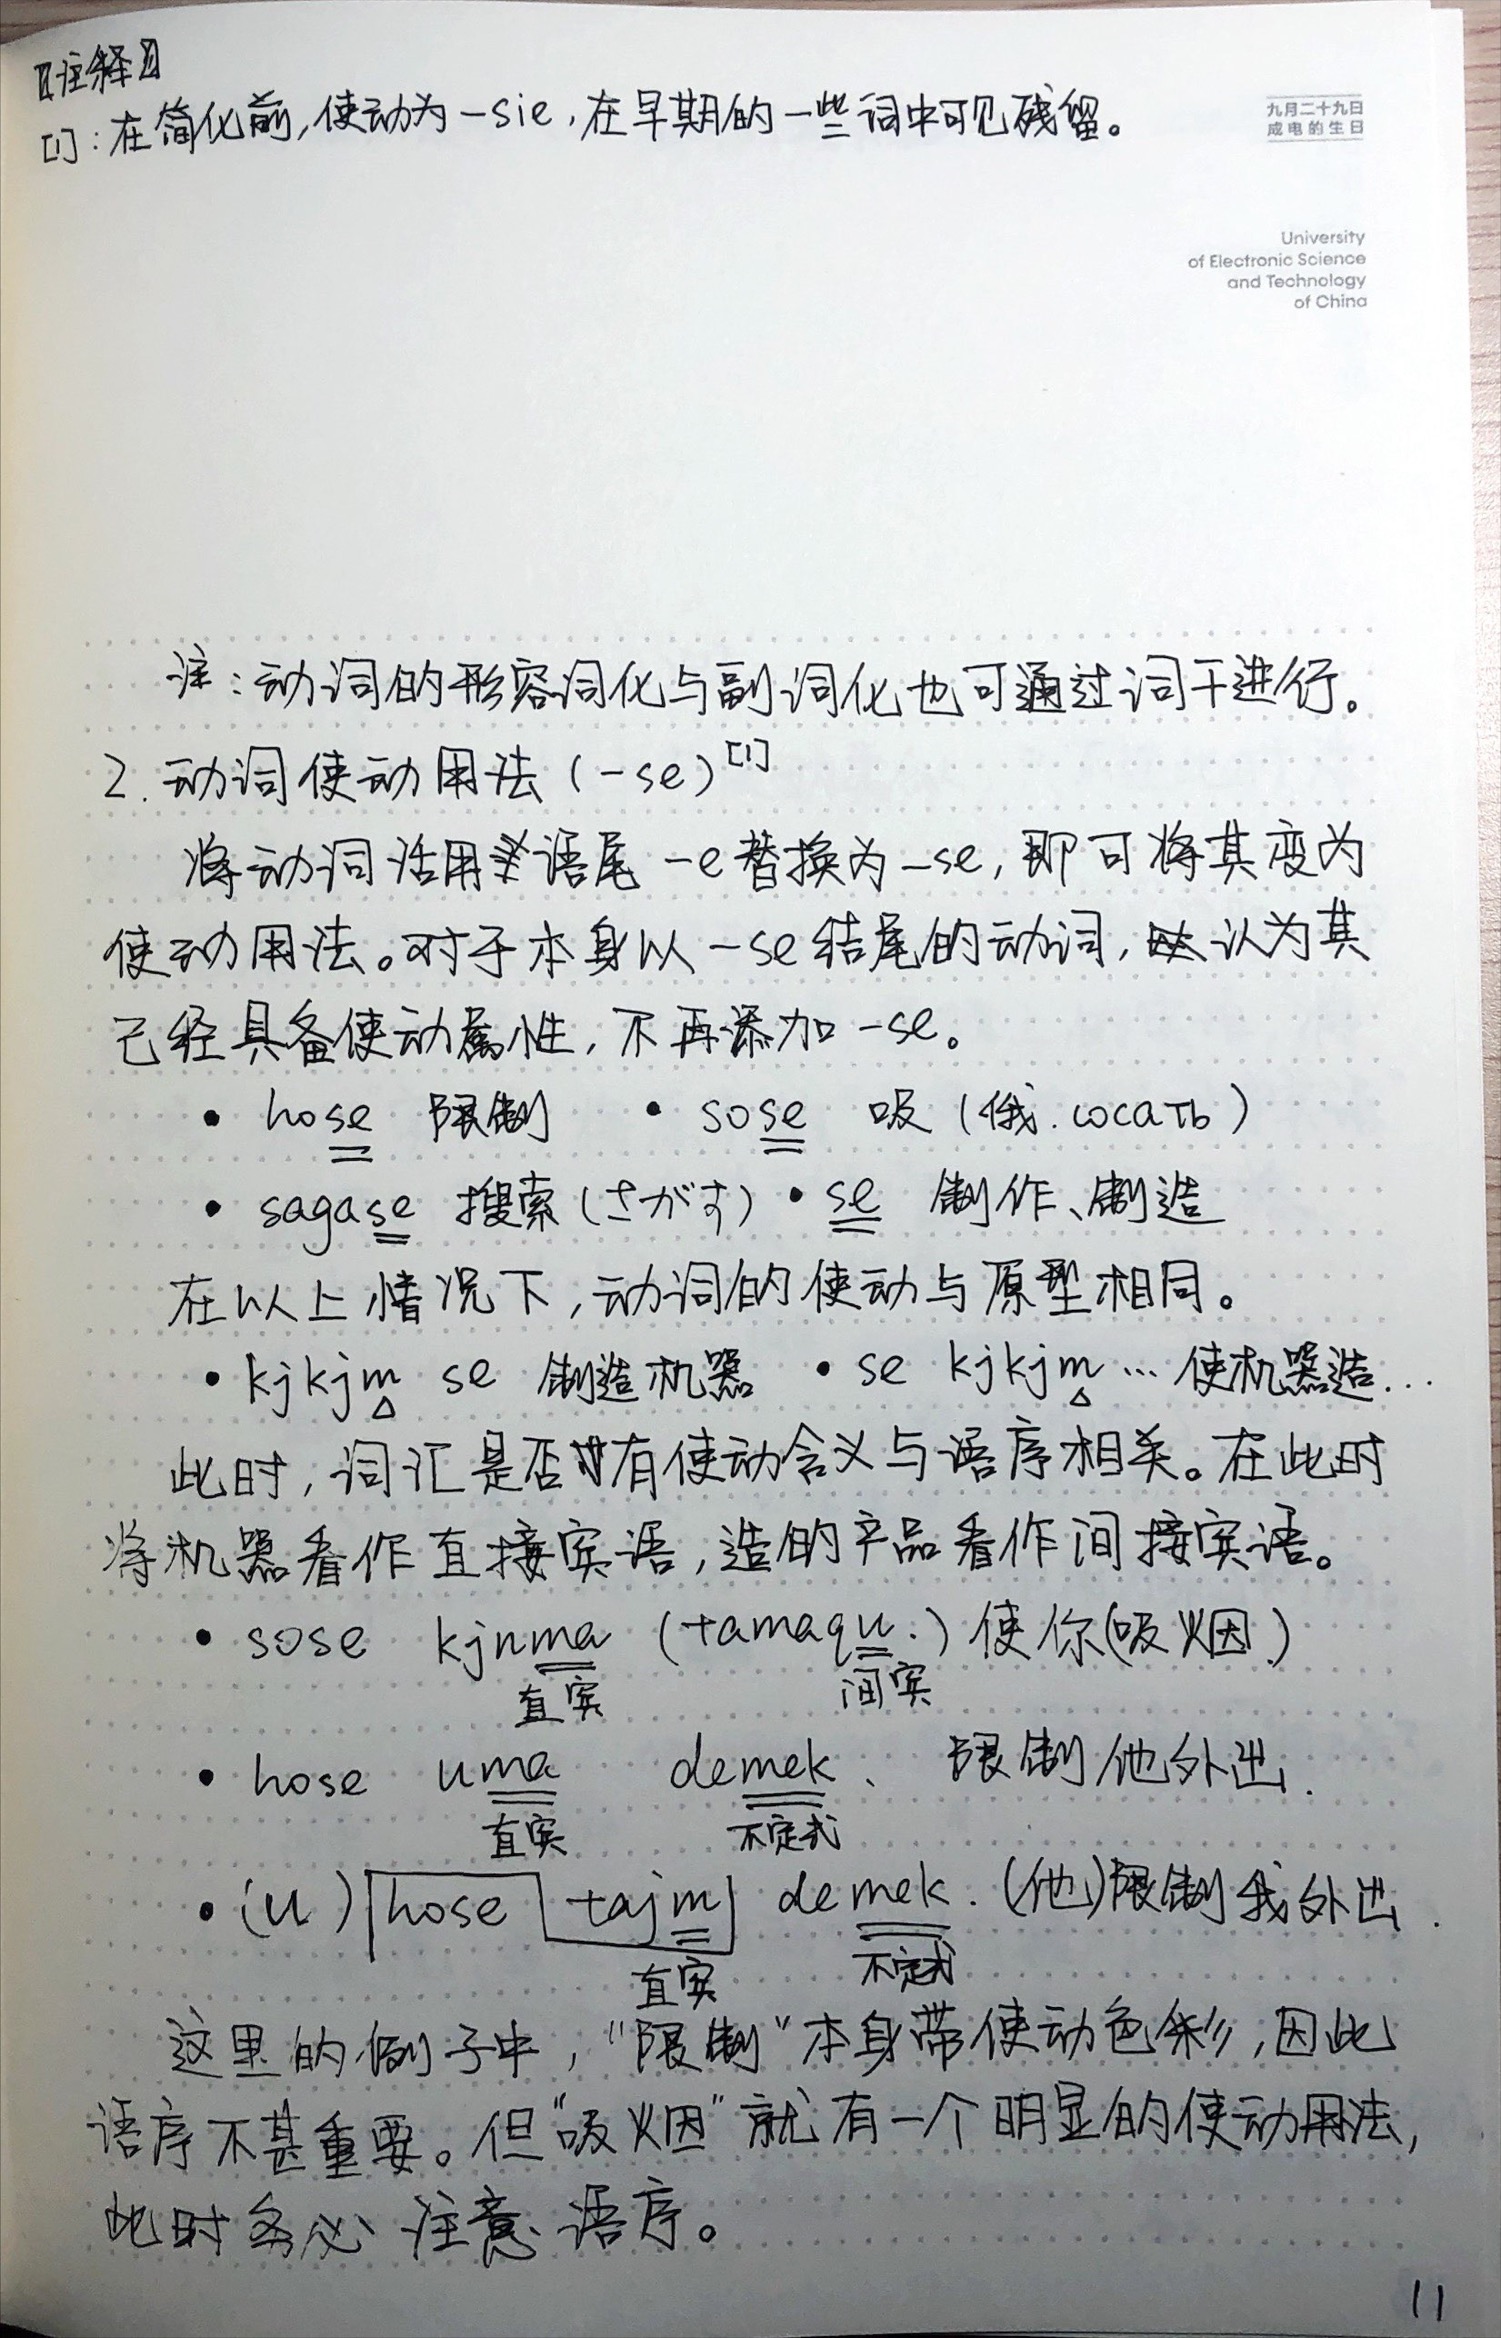 【注释】
[1]: 在简化前,使动为-sie,在早期的一些词中可见残留。
九月二十九日
成电的生日
University
of Electronic Science
and Technology
of China
注:动词的形容词化与副词化也可通过词干进行。
2. 动词使动用法(-se)[1]
将动词活用语尾-e替换为-se,即可将其变为
使动用法。对于本身以-se结尾的动词,认为其
已经具备使动属性,不再添加-se。
• hose 限制 • sose 吸(俄.сосать)
• sagase 搜索(さがす) • se 制作、制造
在以上情况下,动词的使动与原型相同。
• kjkjm se 制造机器 • se kjkjm … 使机器造…
此时,词汇是否有使动含义与语序相关。在此时
将机器看作直接宾语,造的产品看作间接宾语。
• sose kjnma (tamaqu.) 使你(吸烟.)
直宾 间宾
• hose uma demek. 限制他外出.
直宾 不定式
• (u) hose tajm demek. (他)限制我外出.
直宾 不定式
这里的例子中,“限制”本身带使动色彩,因此
语序不甚重要。但“吸烟”就有一个明显的使动用法,
此时务必注意语序。
11